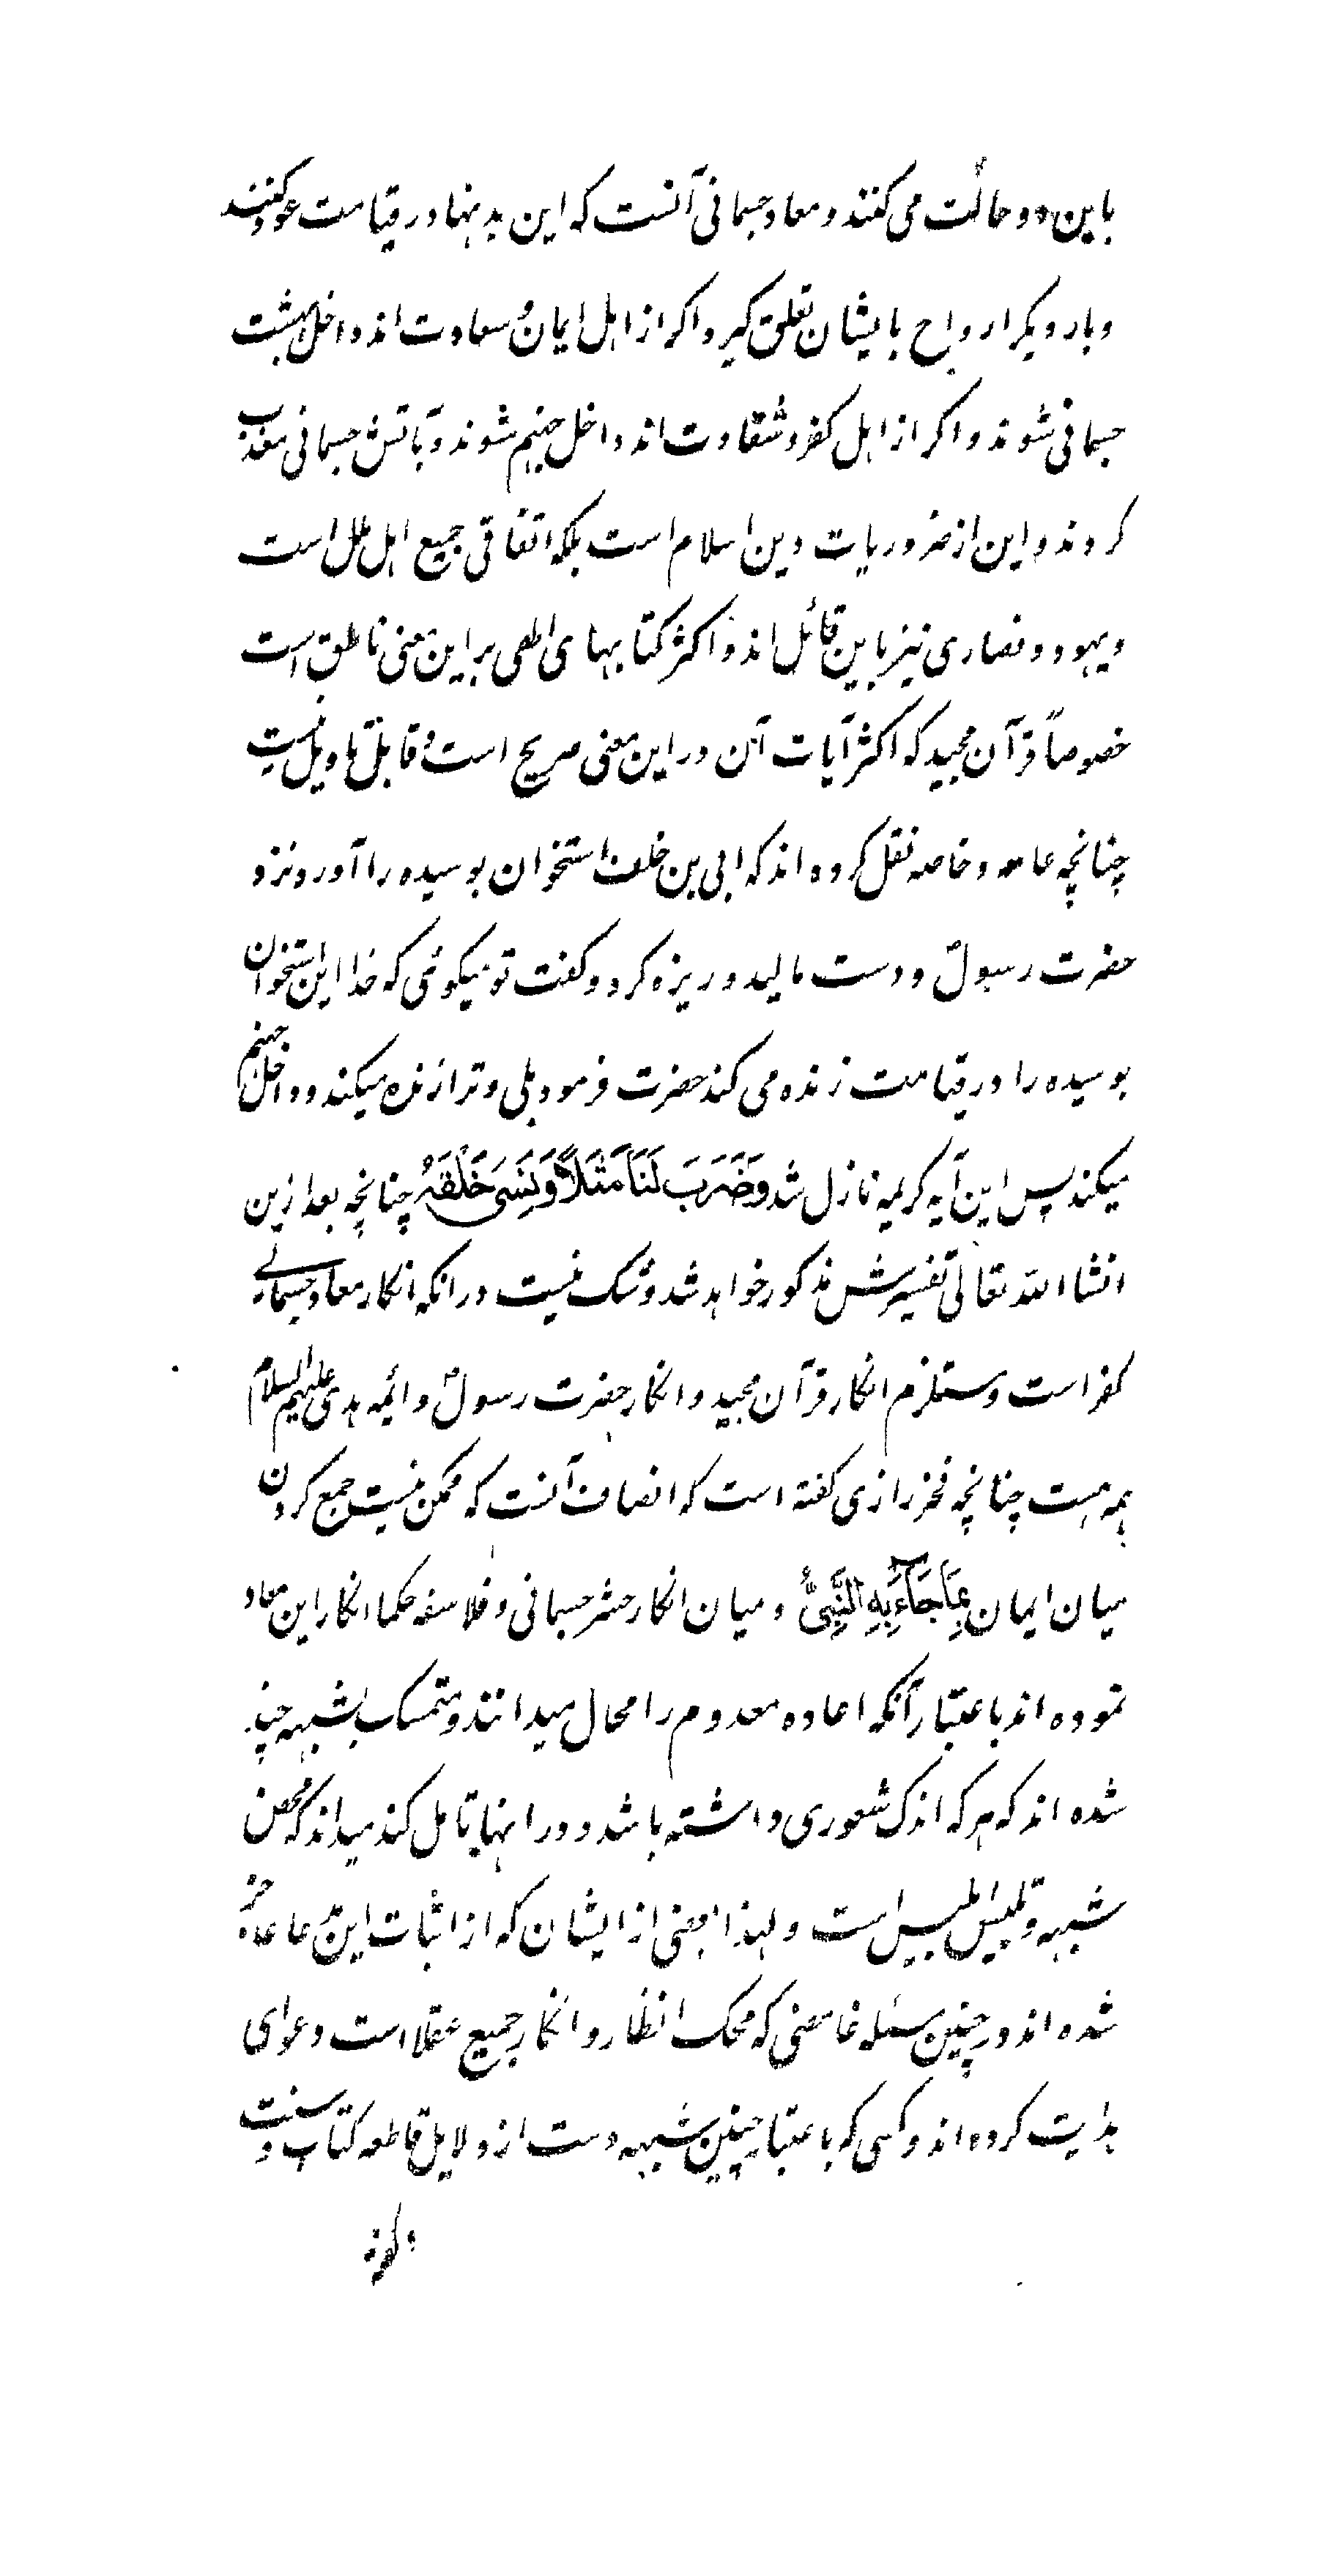 باین دو حالت می کنند و معاد جسمانی آنست که این بدنها در قیامت عود کنند
و بار دیگر ارواح بایشان تعلق گیرد اگر از اهل ایمان و سعادت اند داخل بهشت
جسمانی شوند و اگر از اهل کفر و شقاوت اند داخل جهنم شوند و بآتش جسمانی معذب
گردند و این از ضروریات دین اسلام است بلکه اتفاقی جمیع اهل ملل است
و یهود و نصاری نیز باین قائل اند و اکثر کتابهای الهی بر این معنی ناطق است
خصوصاً قرآن مجید که اکثر آیات آن در این معنی صریح است و قابل تاویل نیست
چنانچه عامه و خاصه نقل کرده اند که ابی بن خلف استخوان بوسیده را آورد نزد
حضرت رسول و دست مالید و ریزه کرد و گفت تو میگوئی که خدا این استخوان
بوسیده را در قیامت زنده می کند حضرت فرمود بلی و ترا زنده میکند و داخل جهنم
میکند پس این آیه کریمه نازل شد وَضَرَبَ لَنَا مَثَلاً وَنَسِیَ خَلْقَهُ چنانچه بعد ازین
انشا الله تعالی تفسیرش مذکور خواهد شد و شک نیست در انکه انکار معاد جسمانی
کفر است و مستلزم انکار قرآن مجید و انکار حضرت رسول و ائمه هدی علیهم السلام
همه هست چنانچه فخر رازی گفته است که انصاف آنست که ممکن نیست جمع کردن
میان ایمان بِمَا جَاءَ بِهِ النَّبِیُّ و میان انکار حشر جسمانی و فلاسفه حکما انکار این معاد
نموده اند باعتبار آنکه اعاده معدوم را محال میدانند و متمسک بشبهه چند
شده اند که هر که اندک شعوری داشته باشد و در انها تامل کند میداند که محض
شبهه و تلبیس ابلیس است و لهذا بعضی از ایشان که از اثبات این مدعا عاجز
شده اند در چنین مسئله غامضی که محک انظار و انکار جمیع عقلا است دعوای
بداهت کرده اند و کسی که باعتبار چنین شبهه دست از دلایل قاطعه کتاب و سنت